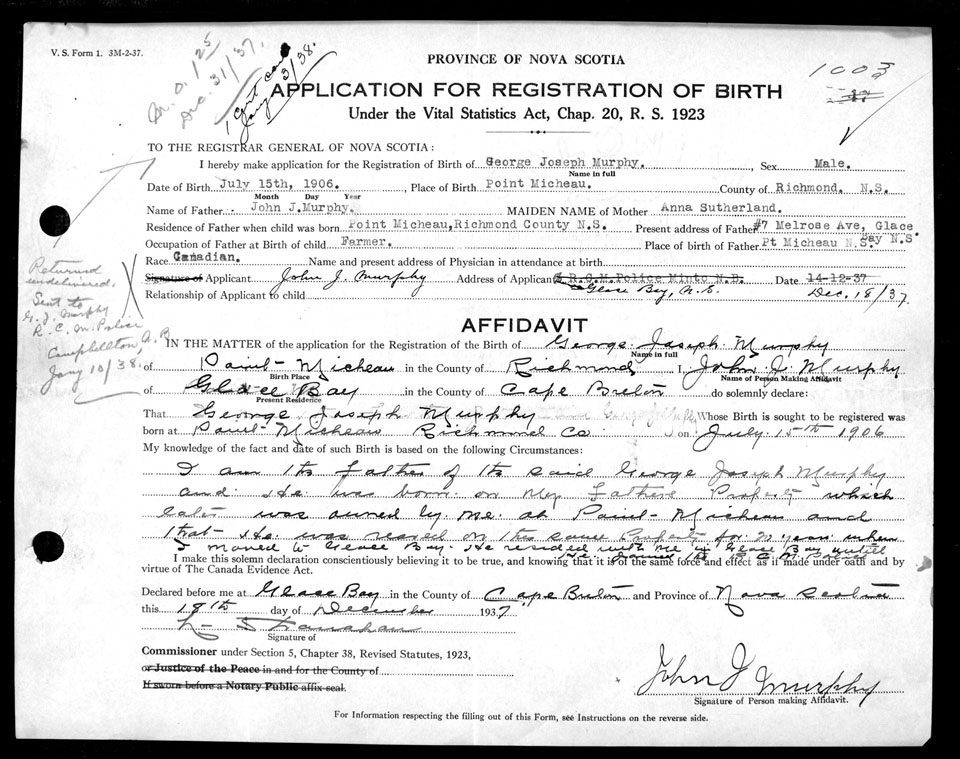 V. S. Form 1. 3M-2-37.
M.O. 1 25
Dec. 31/37.
1 Cert
Jany 3/38.
1003
PROVINCE OF NOVA SCOTIA
APPLICATION FOR REGISTRATION OF BIRTH
Under the Vital Statistics Act, Chap. 20, R. S. 1923
TO THE REGISTRAR GENERAL OF NOVA SCOTIA:
I hereby make application for the Registration of Birth of George Joseph Murphy. Sex Male.
Name in full
Date of Birth July 15th, 1906. , Place of Birth Point Micheau. County of Richmond. N.S.
Month Day Year
Name of Father John J.Murphy. MAIDEN NAME of Mother Anna Sutherland.
Residence of Father when child was born Point Micheau,Richmond County N.S. Present address of Father #7 Melrose Ave, Glace Bay N.S.
Occupation of Father at Birth of child Farmer. Place of birth of Father Pt Micheau N.S.
Race Canadian. Name and present address of Physician in attendance at birth
Signature of Applicant John J. Murphy Address of Applicant R.C.M.Police Minto N.B. Date 14-12-37
Glace Bay, N.S. Dec. 18/37.
Relationship of Applicant to child
Returned
undelivered.
Sent to
G. J. Murphy
R. C. M. Police
Campbellton, N.B.
Jany 10/38.
AFFIDAVIT
IN THE MATTER of the application for the Registration of the Birth of George Joseph Murphy
Name in full
of Point Micheau in the County of Richmond I, John J. Murphy
Birth Place Name of Person Making Affidavit
of Glace Bay in the County of Cape Breton do solemnly declare:
Present Residence
That George Joseph Murphy Whose Birth is sought to be registered was
born at Point Micheau Richmond Co on July 15th 1906
My knowledge of the fact and date of such Birth is based on the following Circumstances:
I am the Father of the said George Joseph Murphy
and He was born on My Fathers Property which
later was owned by me at Point Micheau and
that He was reared on the same Property for years when
I moved to Glace Bay. He resided with me in Glace Bay until
He joined R C M Police
I make this solemn declaration conscientiously believing it to be true, and knowing that it is of the same force and effect as if made under oath and by
virtue of The Canada Evidence Act.
Declared before me at Glace Bay in the County of Cape Breton and Province of Nova Scotia
this 18th day of December 1937
Signature of
Commissioner under Section 5, Chapter 38, Revised Statutes, 1923,
or Justice of the Peace in and for the County of
If sworn before a Notary Public affix seal.
John J Murphy
Signature of Person making Affidavit.
For Information respecting the filling out of this Form, see Instructions on the reverse side.